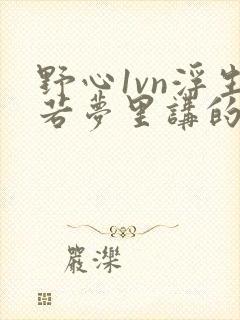 野心1vn浮生
若夢里講的
嚴濼